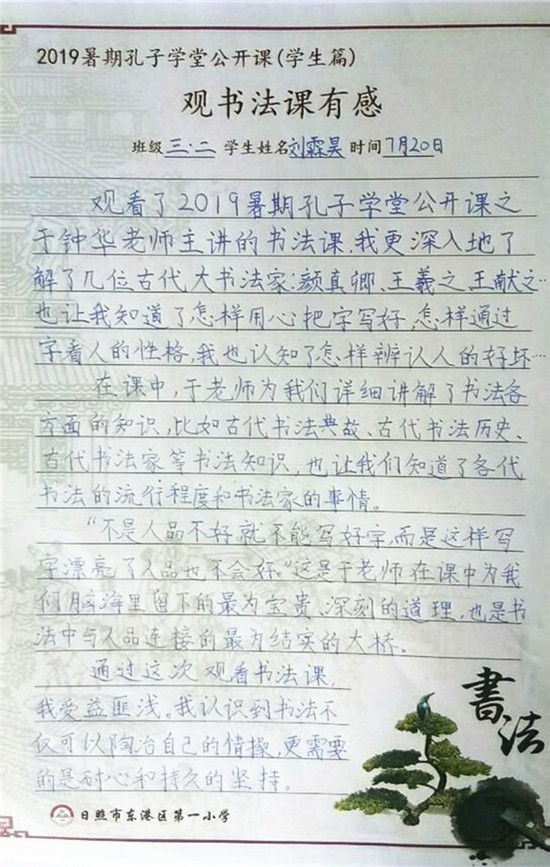 2019暑期孔子学堂公开课(学生篇)
观书法课有感
班级三.二 学生姓名刘霖昊 时间7月20日
观看了2019暑期孔子学堂公开课之
于钟华老师主讲的书法课,我更深入地了
解了几位古代大书法家:颜真卿、王羲之、王献之…
也让我知道了怎样用心把字写好,怎样通过
字看人的性格,我也认知了怎样辨认人的好坏…
在课中,于老师为我们详细讲解了书法各
方面的知识,比如古代书法典故、古代书法历史、
古代书法家等书法知识,也让我们知道了各代
书法的流行程度和书法家的事情。
“不是人品不好就不能写好字,而是这样写
字漂亮了人品也不会好。”这是于老师在课中为我
们脑海里留下的最为宝贵、深刻的道理,也是书
法中与人品连接的最为结实的大桥。
通过这次观看书法课,
我受益匪浅。我认识到书法不
仅可以陶冶自己的情操,更需要
的是耐心和持久的坚持。
書法
日照市东港区第一小学